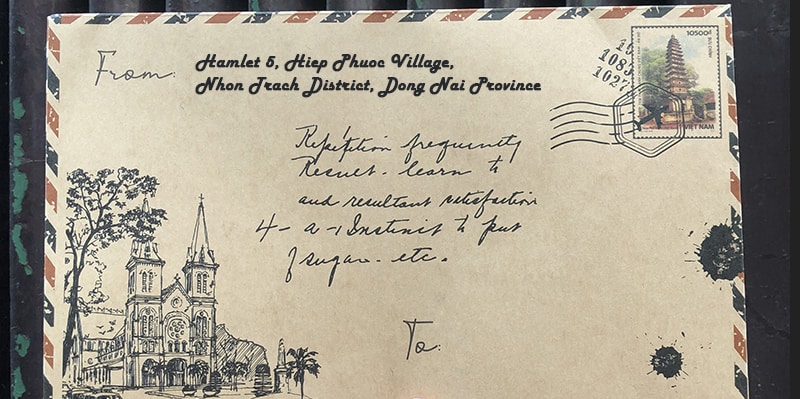 From:
Hamlet 5, Hiep Phuoc Village,
Nhon Trach District, Dong Nai Province
10500đ
1083
1027
VIỆT NAM
Repetition frequently
Result - learn to
and resultant satisfaction
4 - a - Instinct to put
sugar - etc.
To: